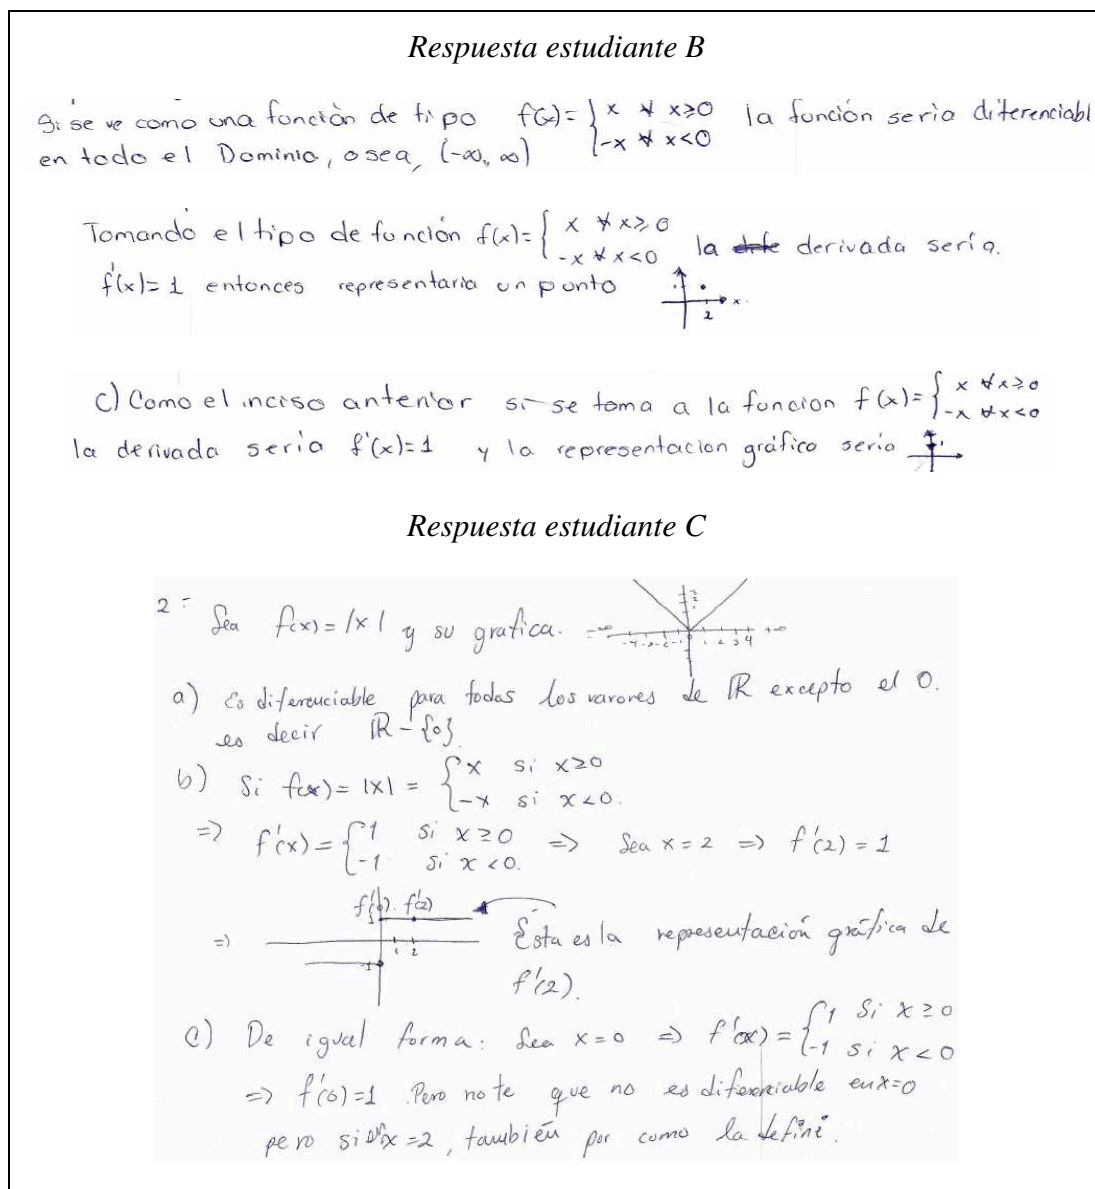 Respuesta estudiante B
Si se ve como una función de tipo f(x)= { x ∀ x≥0 la función seria diferenciabl
-x ∀ x<0
en todo el Dominio, o sea, (-∞, ∞)
Tomando el tipo de función f(x)= { x ∀ x≥0 la derivada sería.
-x ∀ x<0
f'(x)=1 entonces representaria un punto
x
2
c) Como el inciso anterior si se toma a la funcion f(x)= { x ∀ x≥0
-x ∀ x<0
la derivada sería f'(x)=1 y la representacion gráfico seria
Respuesta estudiante C
2- Sea f(x)=|x| y su grafica.
-4 -3 -2 -1 1 2 3 4
a) es diferenciable para todas los varores de ℝ excepto el 0.
es decir ℝ-{0}
b) Si f(x)=|x|= { x si x≥0
-x si x<0.
=> f'(x)= { 1 si x≥0 => Sea x=2 => f'(2)=1
-1 si x<0.
f'(2)
1 2
-1
=> Esta es la representación gráfica de
f'(2).
c) De igual forma: Sea x=0 => f'(x)= { 1 Si x≥0
-1 si x<0
=> f'(0)=1 Pero note que no es diferenciable en x=0
pero si en x=2, también por como la definí.